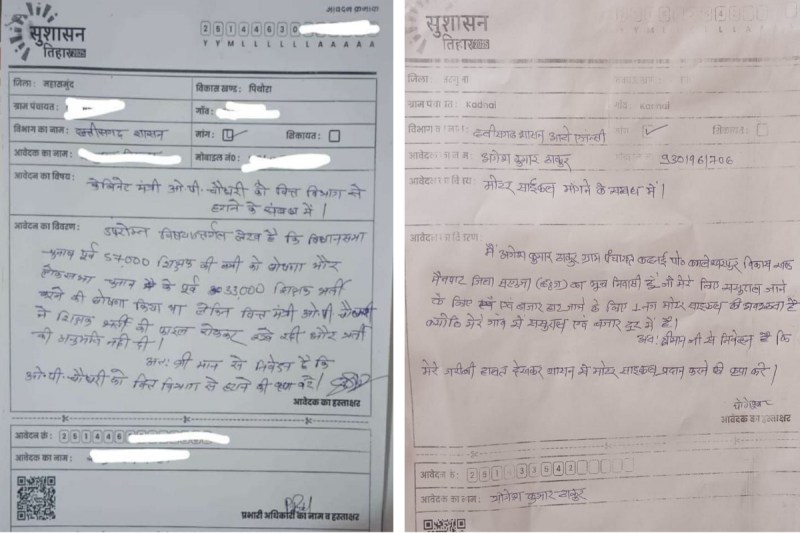 आवेदन क्रमांक
सुशासन
तिहार 2025
2 5 1 4 4 6 3 0
Y Y M L L L L L L A A A A A A
जिला: महासमुंद
विकास खण्ड: पिथौरा
ग्राम पंचायत:
गाँव:
विभाग का नाम: छत्तीसगढ़ शासन
मांग:
शिकायत:
आवेदक का नाम:
मोबाइल नं0:
आवेदन का विषय:
केबिनेट मंत्री ओ.पी. चौधरी को वित्त विभाग से
हटाने के संबंध में।
आवेदन का विवरण:
उपरोक्त विषयान्तर्गत लेख है कि विधानसभा
चुनाव पूर्व 57000 शिक्षक की भर्ती की घोषणा और
लोकसभा चुनाव के पूर्व 33,000 शिक्षक भर्ती
करने की घोषणा किया था लेकिन वित्त मंत्री ओ.पी. चौधरी
ने शिक्षक भर्ती की फाइल रोककर रखे रही और भर्ती
की अनुमति नहीं दी।
अतः श्री मान से निवेदन है कि
ओ.पी. चौधरी को वित्त विभाग से हटाने की कृपा करें।
आवेदक का हस्ताक्षर
आवेदन क्रं: 2 5 1 4 4 6
आवेदक का नाम:
प्रभारी अधिकारी का नाम व हस्ताक्षर
सुशासन
तिहार
जिला:
ग्राम पंचायत: Kadnai
गाँव: Kadnai
विभाग का नाम: छत्तीसगढ़ शासन
मांग:
शिकायत:
योगेश कुमार ठाकुर
9301961706
आवेदन का विषय:
मोटर साईकल मांगने के संबंध में।
आवेदन का विवरण:
मैं योगेश कुमार ठाकुर ग्राम पंचायत कदनई पो० विकास खण्ड
मैनपाट जिला सरगुजा (छ.ग) का मूल निवासी हूँ जो मेरे लिए ससुराल जाने
के लिए एवं बजार हाट जाने के लिए 1-नग मोटर साइकल की आवश्यकता है
क्योंकि मेरे गांव से ससुराल एवं बजार दूर में है।
अतः श्रीमान जी से निवेदन है कि
मेरे गरीबी हालत देखकर शासन से मोटर साइकल प्रदान करने की कृपा करें।
आवेदक का हस्ताक्षर
आवेदन क्रं: 2 5 1 3 3 5 4 2
आवेदक का नाम: योगेश कुमार ठाकुर